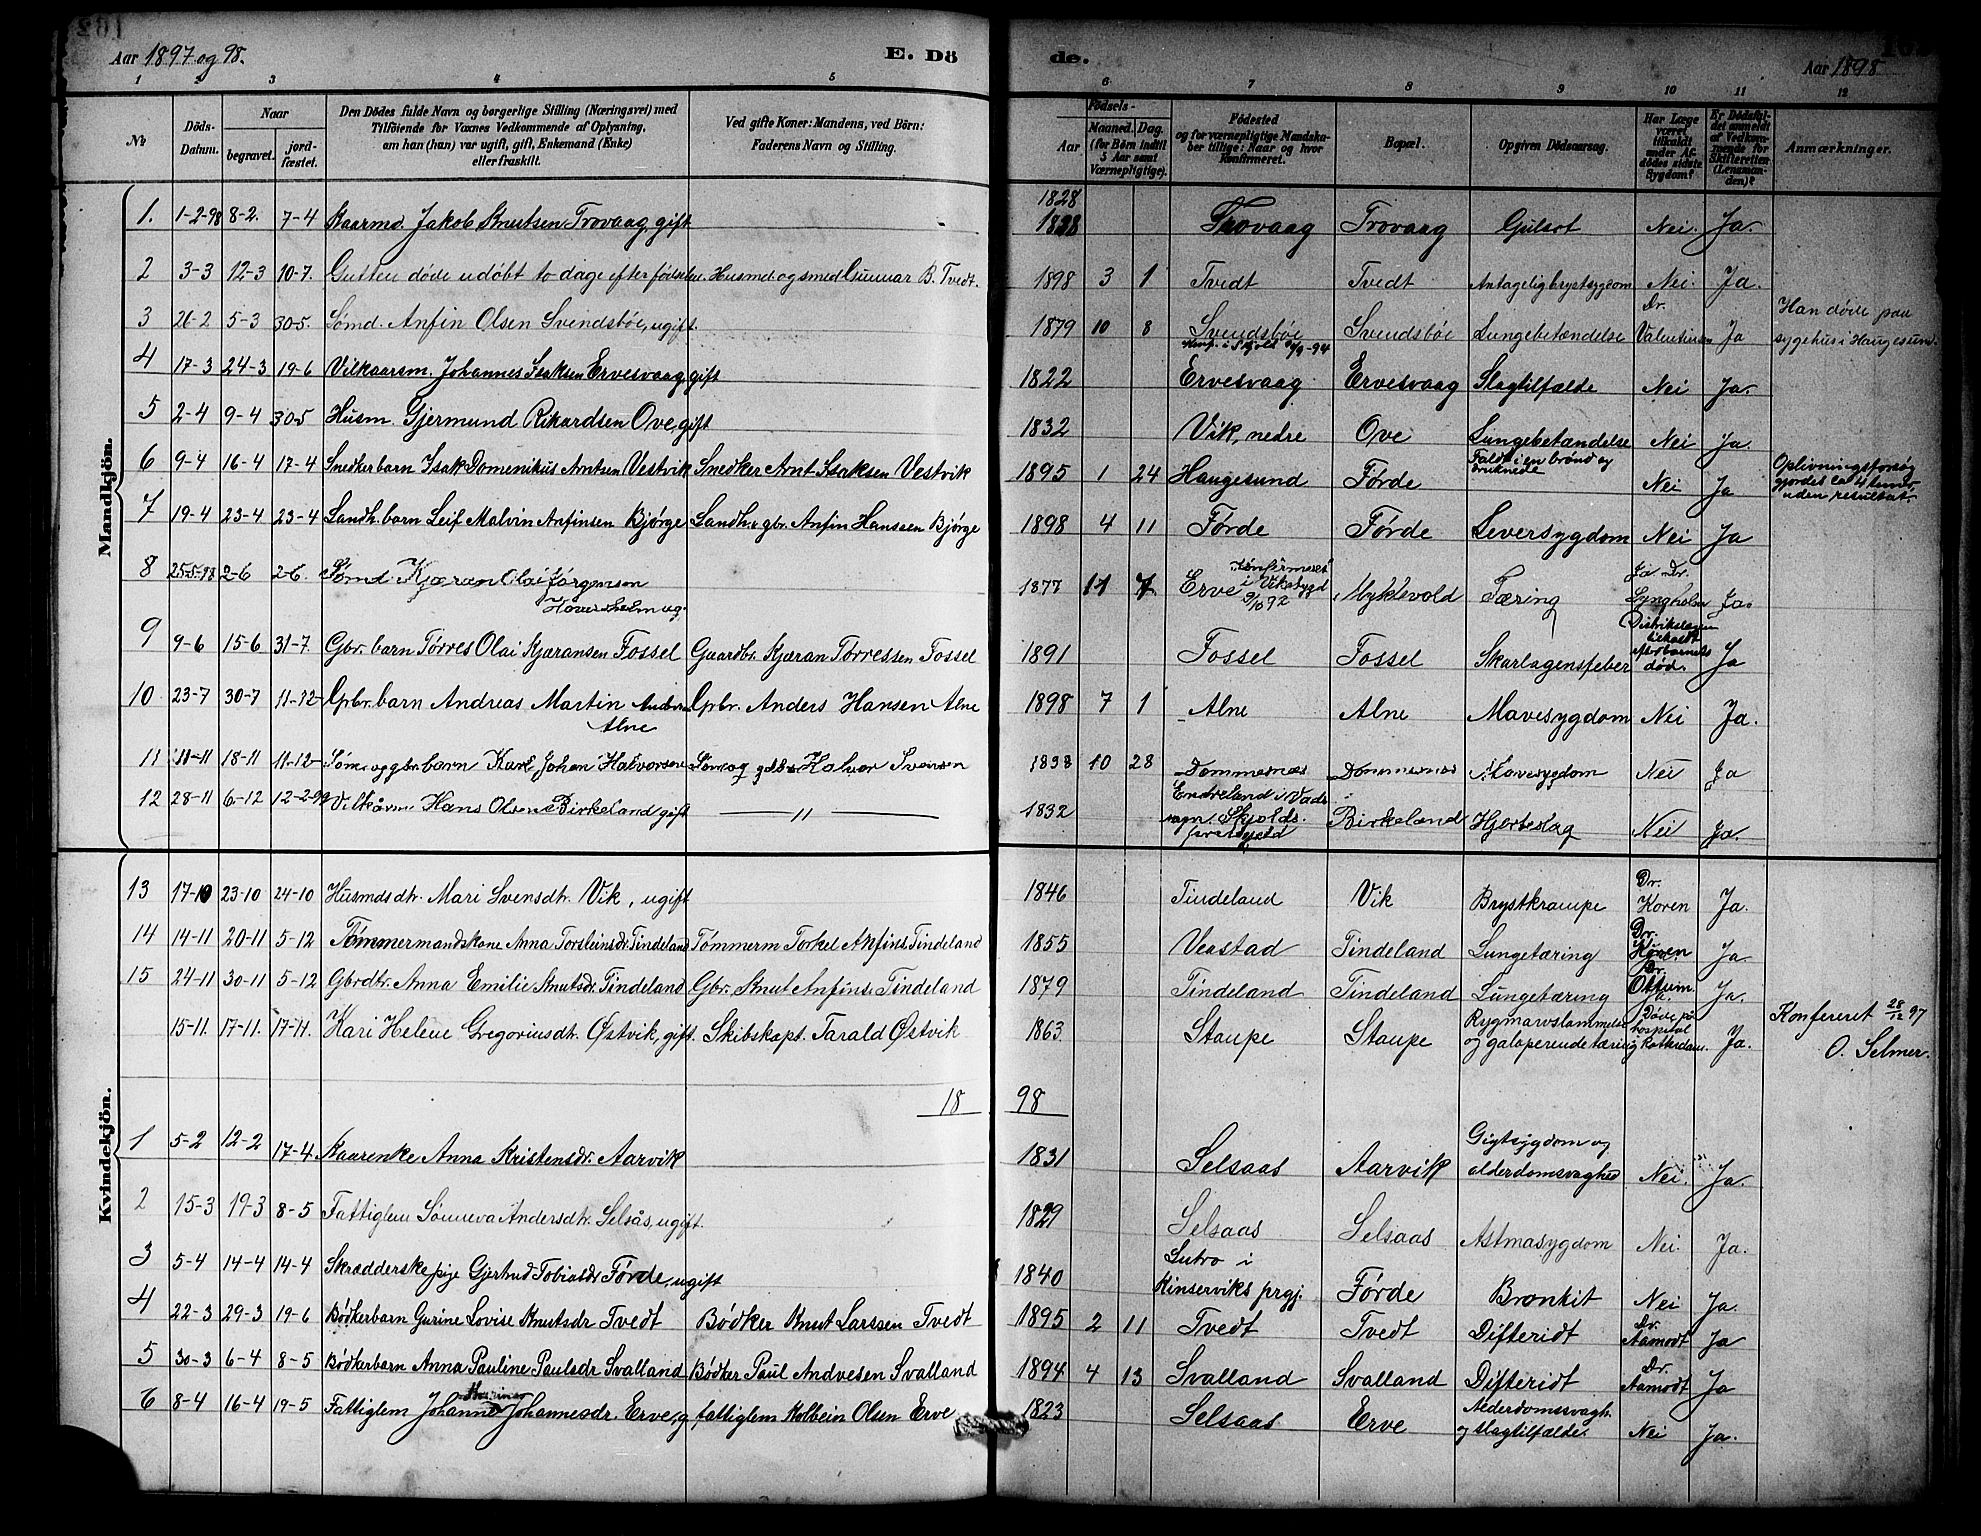 Aar 1897 og 98. E. Dö de. Aar 1898
1 2 3 4 5 6 7 8 9 10 11 12
№
Döds-Datum.
Naar
begravet. jordfæstet.
Den Dödes fulde Navn og borgerlige Stilling (Næringsvei) med
Tilföiende for Voxnes Vedkommende af Oplysning,
om han (hun) var ugift, gift, Enkemand (Enke)
eller fraskilt.
Ved gifte Koner: Mandens, ved Börn:
Faderens Navn og Stilling.
Födsels-
Aar Maaned. Dag.
(for Börn indtil
5 Aar samt
Værnepligtige).
Födested
og for værnepligtige Mandskaber tillige: Naar og hvor
Konfirmeret.
Bopæl.
Opgiven Dödsaarsag.
Har Læge
været
tilkaldt
under Afdödes sidste
Sygdom?
Er Dödsfaldet anmeldt
af Vedkommende for
Skifteretten
(Lensmanden)?
Anmærkninger.
Mandkjön.
1828
1. 1-2-98 8-2. 7-4 Kaarmd. Jakob Knutsen Trovaag, gift 1828 Trovaag Trovaag Gulsot Nei. Ja.
2 3-3 12-3 10-7. Gutten döde udöbt to dage efter fødselen. Husmd. og smed Gunnar B. Tvedt. 1898 3 1 Tvedt Tvedt Antagelig brystsygdom Nei. Ja.
3 26-2 5-3 30-5. Sømd. Anfin Olsen Svendsböe, ugift. 1879 10 8 Svendsböe Svendsböe Lungebetændelse Dr. Valentinsen Ja Han døde paa
Konf. i Skjold -94 sygehus i Haugesund.
4 17-3 24-3 19-6 Vilkaarsm. Johannes Isaksen Ervesvaag, gift 1822 Ervesvaag Ervesvaag Slagtilfælde Nei Ja.
5 2-4 9-4 30-5 Husm. Gjermund Rikardsen Ove, gift 1832 Vik, nedre Ove Lungebetændelse Nei Ja.
6 9-4 16-4 17-4 Snedkerbarn Isak Domenikus Arntsen Vestvik Snedker Arnt Isaksen Vestvik 1895 1 24 Haugesund Førde Faldt i en brønd og druknede Nei Ja Oplivningsforsøg
gjordes ca 4 timer
uden resultat.
7 19-4 23-4 23-4 Landh. barn Leif Malvin Anfinsen Bjørge Landh. & gbr. Anfin Hanssen Bjørge 1898 4 11 Førde Førde Leversygdom Nei Ja
8 25-5-98 2-6 2-6. Sømd Kjæran Olai Jørgensen 1877 11 7 Erve konfirmeret i Viksbygd 9/10 92 Myklevold Tæring Ja Dr. Lyngholm Ja.
9 9-6 15-6 31-7. Gbr. barn Tørres Olai Kjæransen Fossel Gaardbr. Kjæran Tørressen Fossel 1891 Fossel Fossel Skarlagensfeber Distriktslægen tilkaldt efter barnets død. Ja
10 23-7 30-7 11-12- Gbr. barn Andreas Martin Anders. Gbr. Anders Hansen Alne 1898 7 1 Alne Alne Mavesygdom Nei Ja.
Alne
11 11-11 18-11 11-12- Søm. og gbr. barn Karl Johan Halvorsen Søm og gdbr. Halvor Svensen 1898 10 28 Dommersnes Dommersnes Mavesygdom Nei Ja
12 28-11 6-12 12-2-99 Vilkårm. Hans Olsen Birkeland gift —— " —— 1832 Endreland i Vads sogn Skjolds præstegjeld Birkeland Hjerteslag Nei Ja.
Kvindekjön.
13 17-10 23-10 24-10 Husmdsdtr. Mari Svensdtr. Vik, ugift 1846 Tindeland Vik Brystkrampe Dr. Koren Ja.
14 14-11 20-11 5-12 Tømmermandskone Anna Torsteinsdr. Tindeland Tømmerm Torkel Anfins. Tindeland 1855 Veastad Tindeland Lungetæring Dr. Koren Ja
15 24-11 30-11 5-12 Gbrdtr. Anna Emilie Knutsdr. Tindeland Gbr. Knut Anfins. Tindeland 1879 Tindeland Tindeland Lungetæring Dr. Ottum Ja.
15-11. 17-11. 17-11. Kari Helene Gregoriusdtr. Østvik, gift. Skibskapt. Tarald Østvik 1863 Staupe Staupe Rygmarvslammelse og galoperende tæring Ja. Døde på hospital Rotterdam. Ja. Konfereret 28/12 97
O. Selmer.
18 98
1 5-2 12-2 17-4 Kaarenke Anna Kristensdr. Aarvik 1831 Selsaas Aarvik Gigtsygdom og alderdomsvaghed Nei. Ja.
2 15-3 19-3 8-5 Fattiglem Sønneva Andersdtr. Selsås, ugift. 1829 Selsaas Selsaas Astmasygdom Nei. Ja.
3 5-4 14-4 14-4 Skrædderskepige Gjertrud Tobiasdr Førde, ugift 1840 Sutro i Kinserviks prgj. Førde Bronkit Nei Ja.
4 22-3 29-3 19-6 Bødkerbarn Gurine Lovise Knutsdr Tvedt Bødker Knut Larssen Tvedt 1895 2 11 Tvedt Tvedt Difteridt Dr. Aamodt Ja
5 30-3 6-4 8-5 Bødkerbarn Anna Pauline Paulsdr Svalland Bødker Paul Andresen Svalland 1894 4 13 Svalland Svalland Difteridt Dr. Aamodt Ja
6 8-4 16-4 19-5 Fattiglem Johanne Johannesdr. Erve, g fattiglem Kolbein Olsen Erve 1823 Selsaas Erve Alderdomssvagh. og slagtilfælde. Nei Ja.